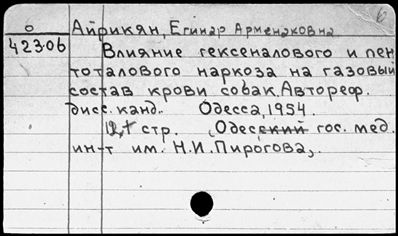 о Айрикян, Егинар Арменаковна
42306 Влияние гексеналового и пен
тоталового наркоза на газовый
состав крови собак. Автореф.
дисс. канд. Одесса, 1954.
стр. (Одесский гос. мед.
ин-т им. Н.И. Пирогова).